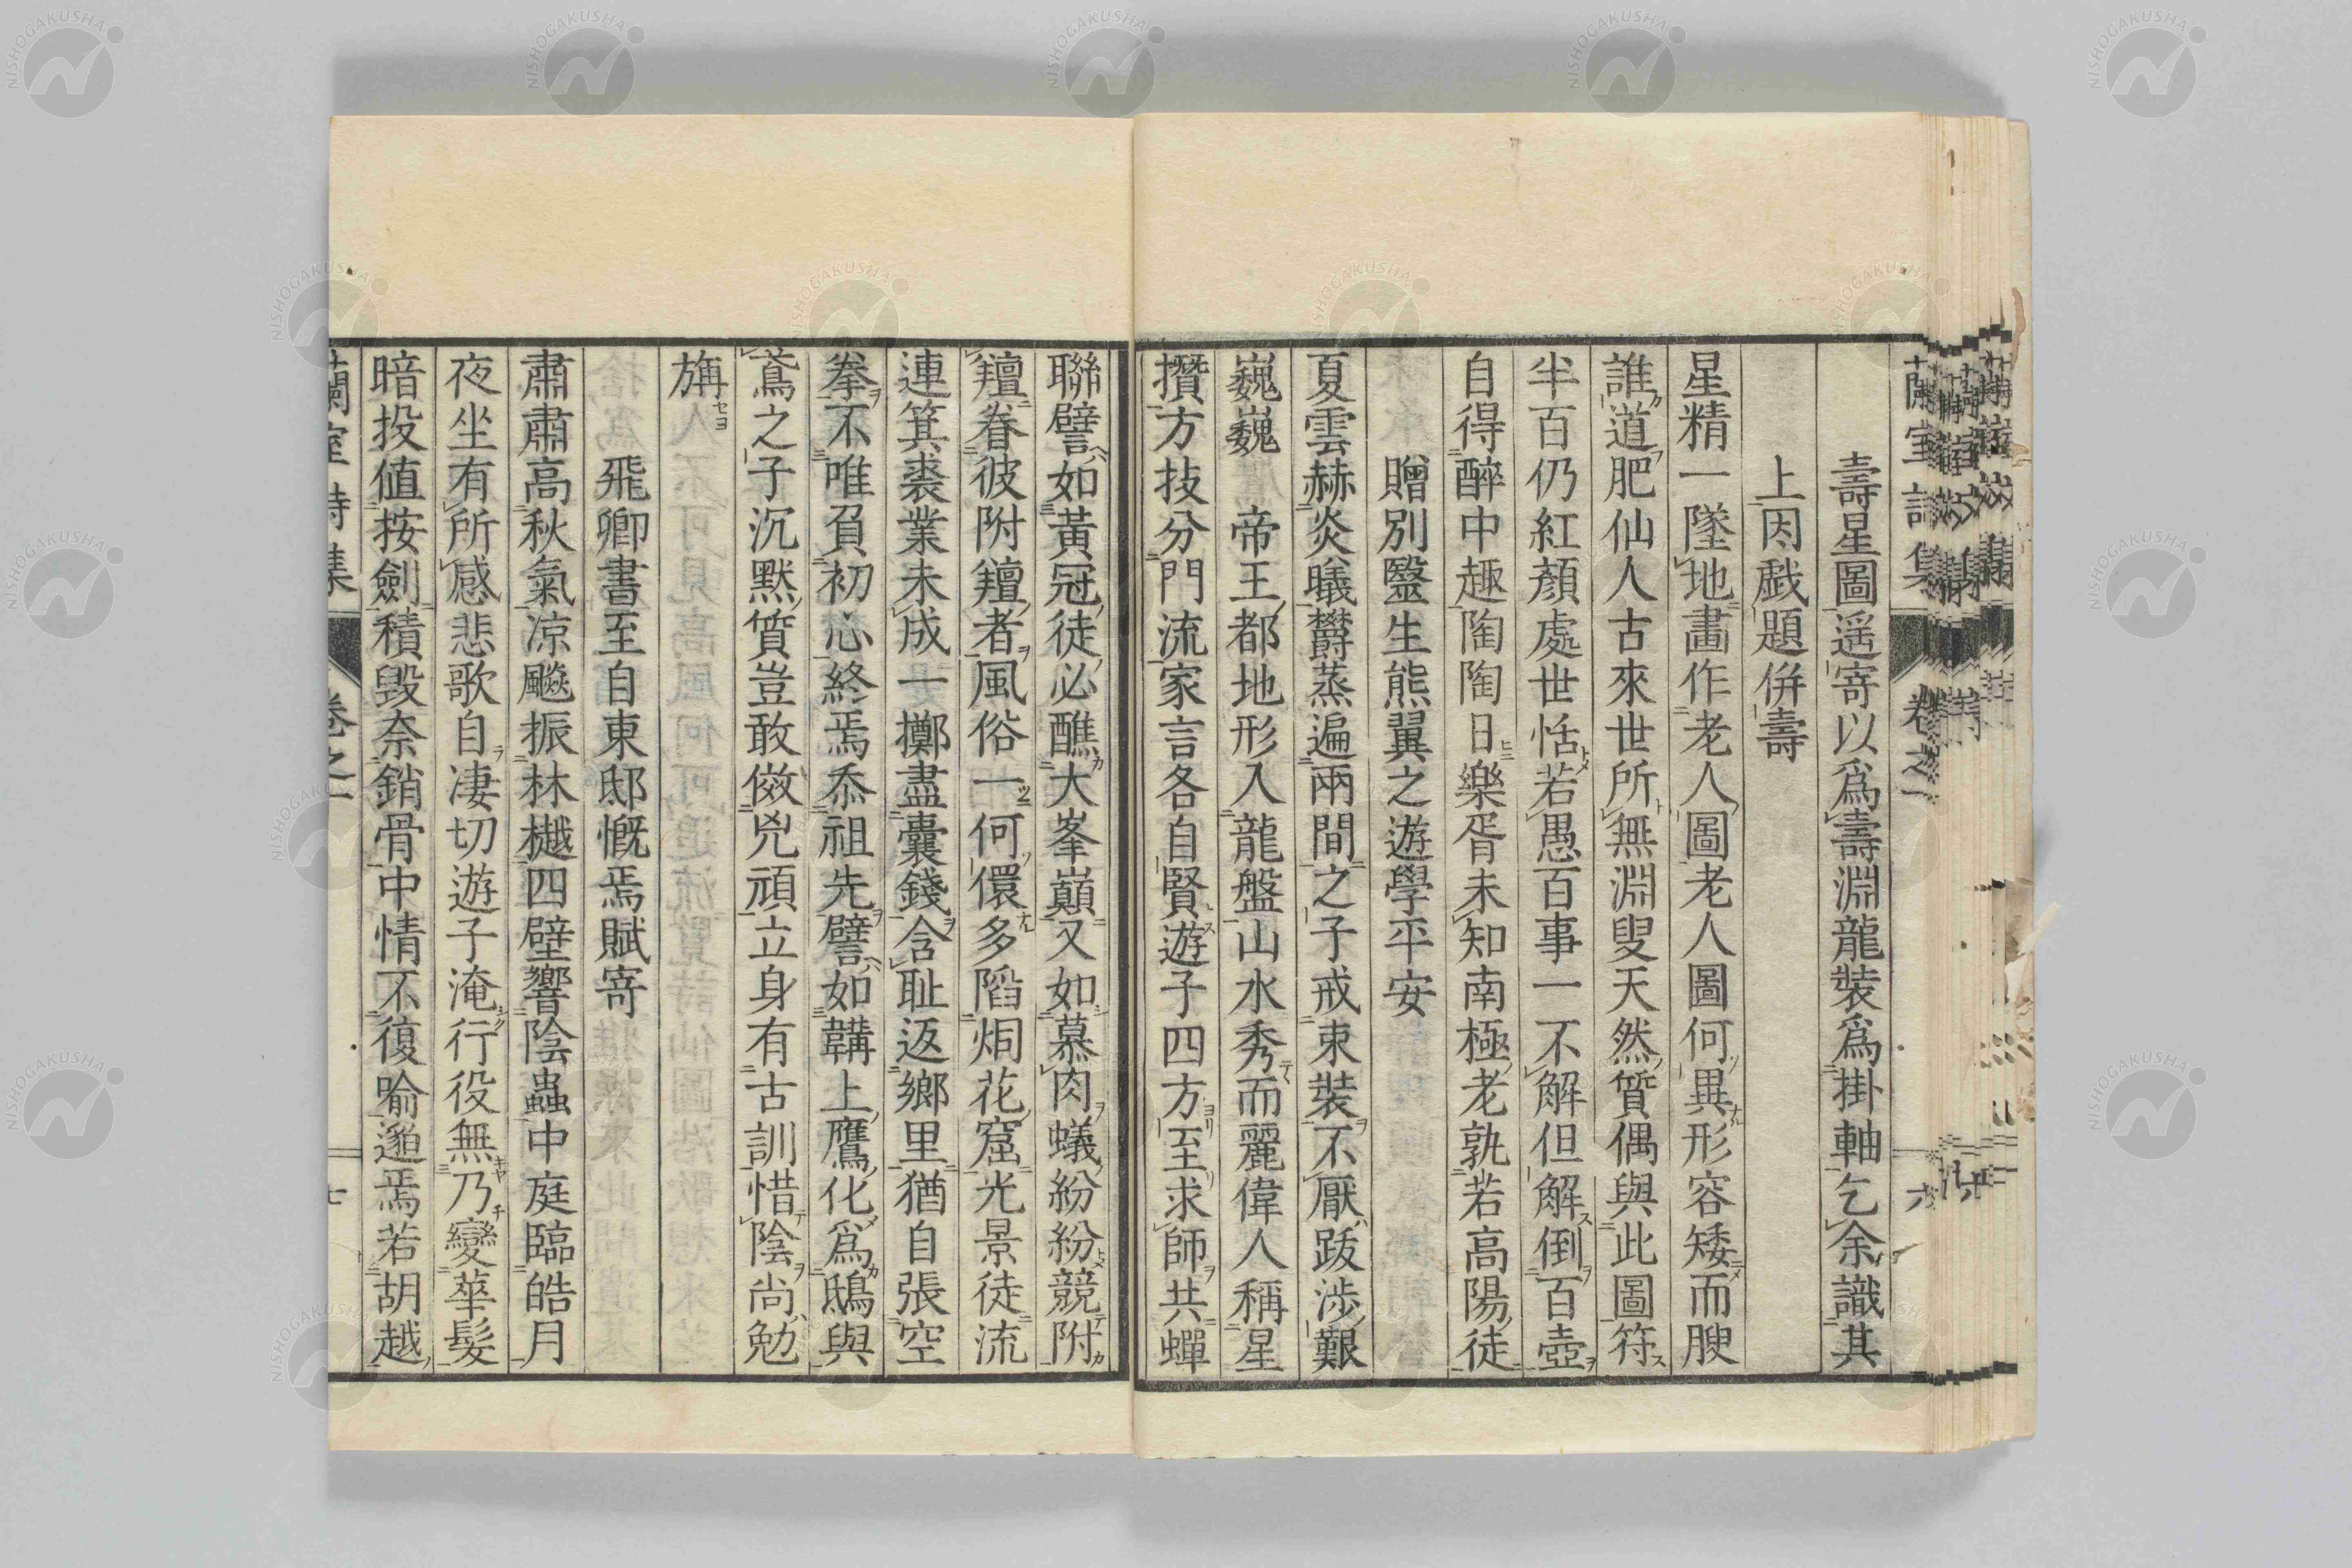 壽星圖遥寄以爲壽淵龍裝爲掛軸乞余識其
上因戯題併壽
星精一墜地畵作老人圖老人圖何異形容矮而腴
誰道肥仙人古來世所無淵叟天然質偶與此圖符
半百仍紅顏處世恬若愚百事一不解但解倒百壺
自得醉中趣陶陶日樂胥未知南極老孰若高陽徒
贈別醫生熊翼之遊學平安
夏雲赫炎曦欝蒸遍兩間之子戒束裝不厭跋涉艱
巍巍帝王都地形入龍盤山水秀而麗偉人稱星
攢方技分門流家言各自賢遊子四方至求師共蟬
聯譬如黃冠徒必醮大峯巓又如慕肉蟻紛紛競附
羶眷彼附羶者風俗一何儇多䧟烟花窟光景徒流
連箕裘業未成一擲盡囊錢含耻返鄉里猶自張空
拳不唯負初心終焉忝祖先譬如韝上鷹化爲鴟與
鳶之子沉默質豈敢傚兇頑立身有古訓惜陰尚勉
旃
飛卿書至自東邸慨焉賦寄
肅肅高秋氣凉飈振林樾四壁響陰蟲中庭臨皓月
夜坐有所感悲歌自凄切遊子淹行役無乃變華髮
暗投値按劍積毀奈銷骨中情不復喻邈焉若胡越